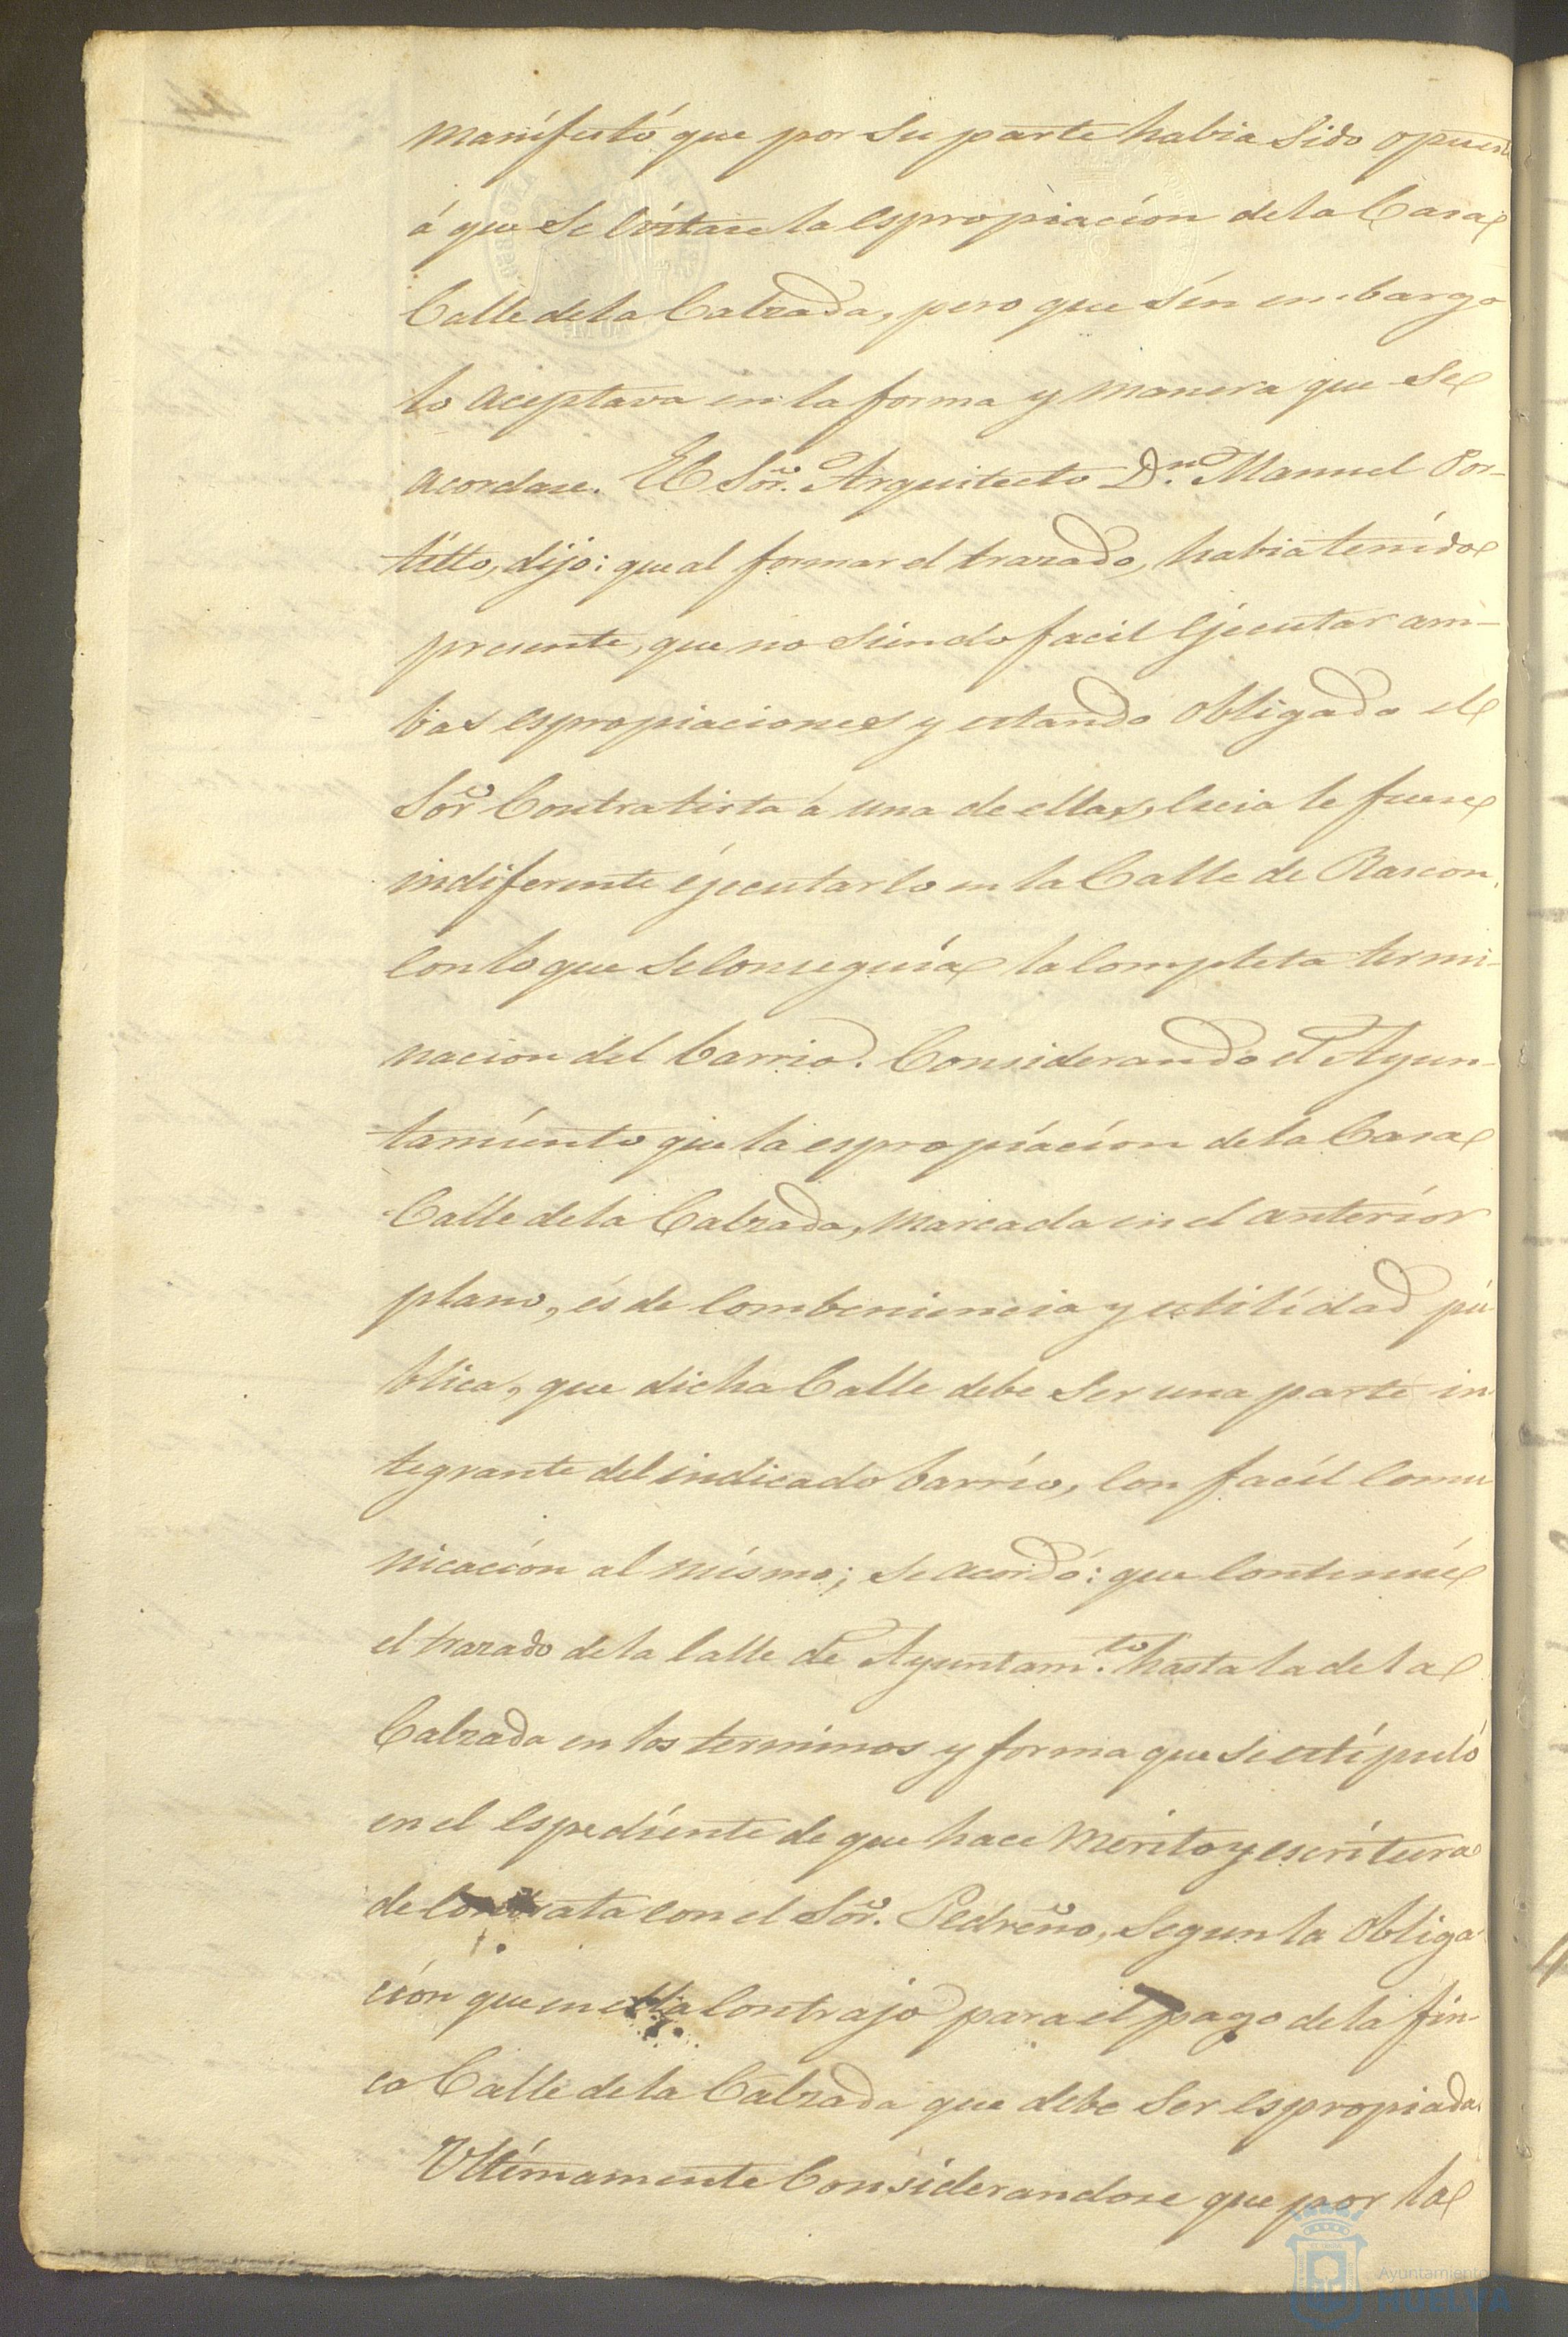 manifestó que por su parte habia sido opuesto
á que se evitase la espropiacion de la Casa
Calle de la Calzada, pero que sin embargo
lo aceptava en la forma y manera que se
acordase. El Sor. Arquitecto Dn. Manuel Por-
tillo, dijo: que al formar el trazado, habia tenido
presente, que no siendo facil ejecutar am-
bas espropiaciones y estando obligado el
Sor Contratista á una de ellas, creia le fuese
indiferente ejecutarlo en la Calle de Rascon,
con lo que se conseguia la completa termi-
nacion del barrio. Considerando el Ayun-
tamiento que la espropiacion de la Casa
Calle de la Calzada, marcada en el anterior
plano, és de combeniencia y utilidad pú
blica, que dicha Calle debe ser una parte in
tegrante del indicado barrio, con facil comu
nicacion al mismo; se acordó: que continúe
el trazado de la calle de Ayuntam.to hasta la de la
Calzada en los terminos y forma que se estipuló
en el espediente de que hace merito y escritura
de contrata con el Sor. Pedreño, segun la obliga-
ción que en ella contrajo para el pago de la fin-
ca Calle de la Calzada que debe ser espropiada.
Ultimamente Considerandose que por la
Ayuntamiento
HUELVA